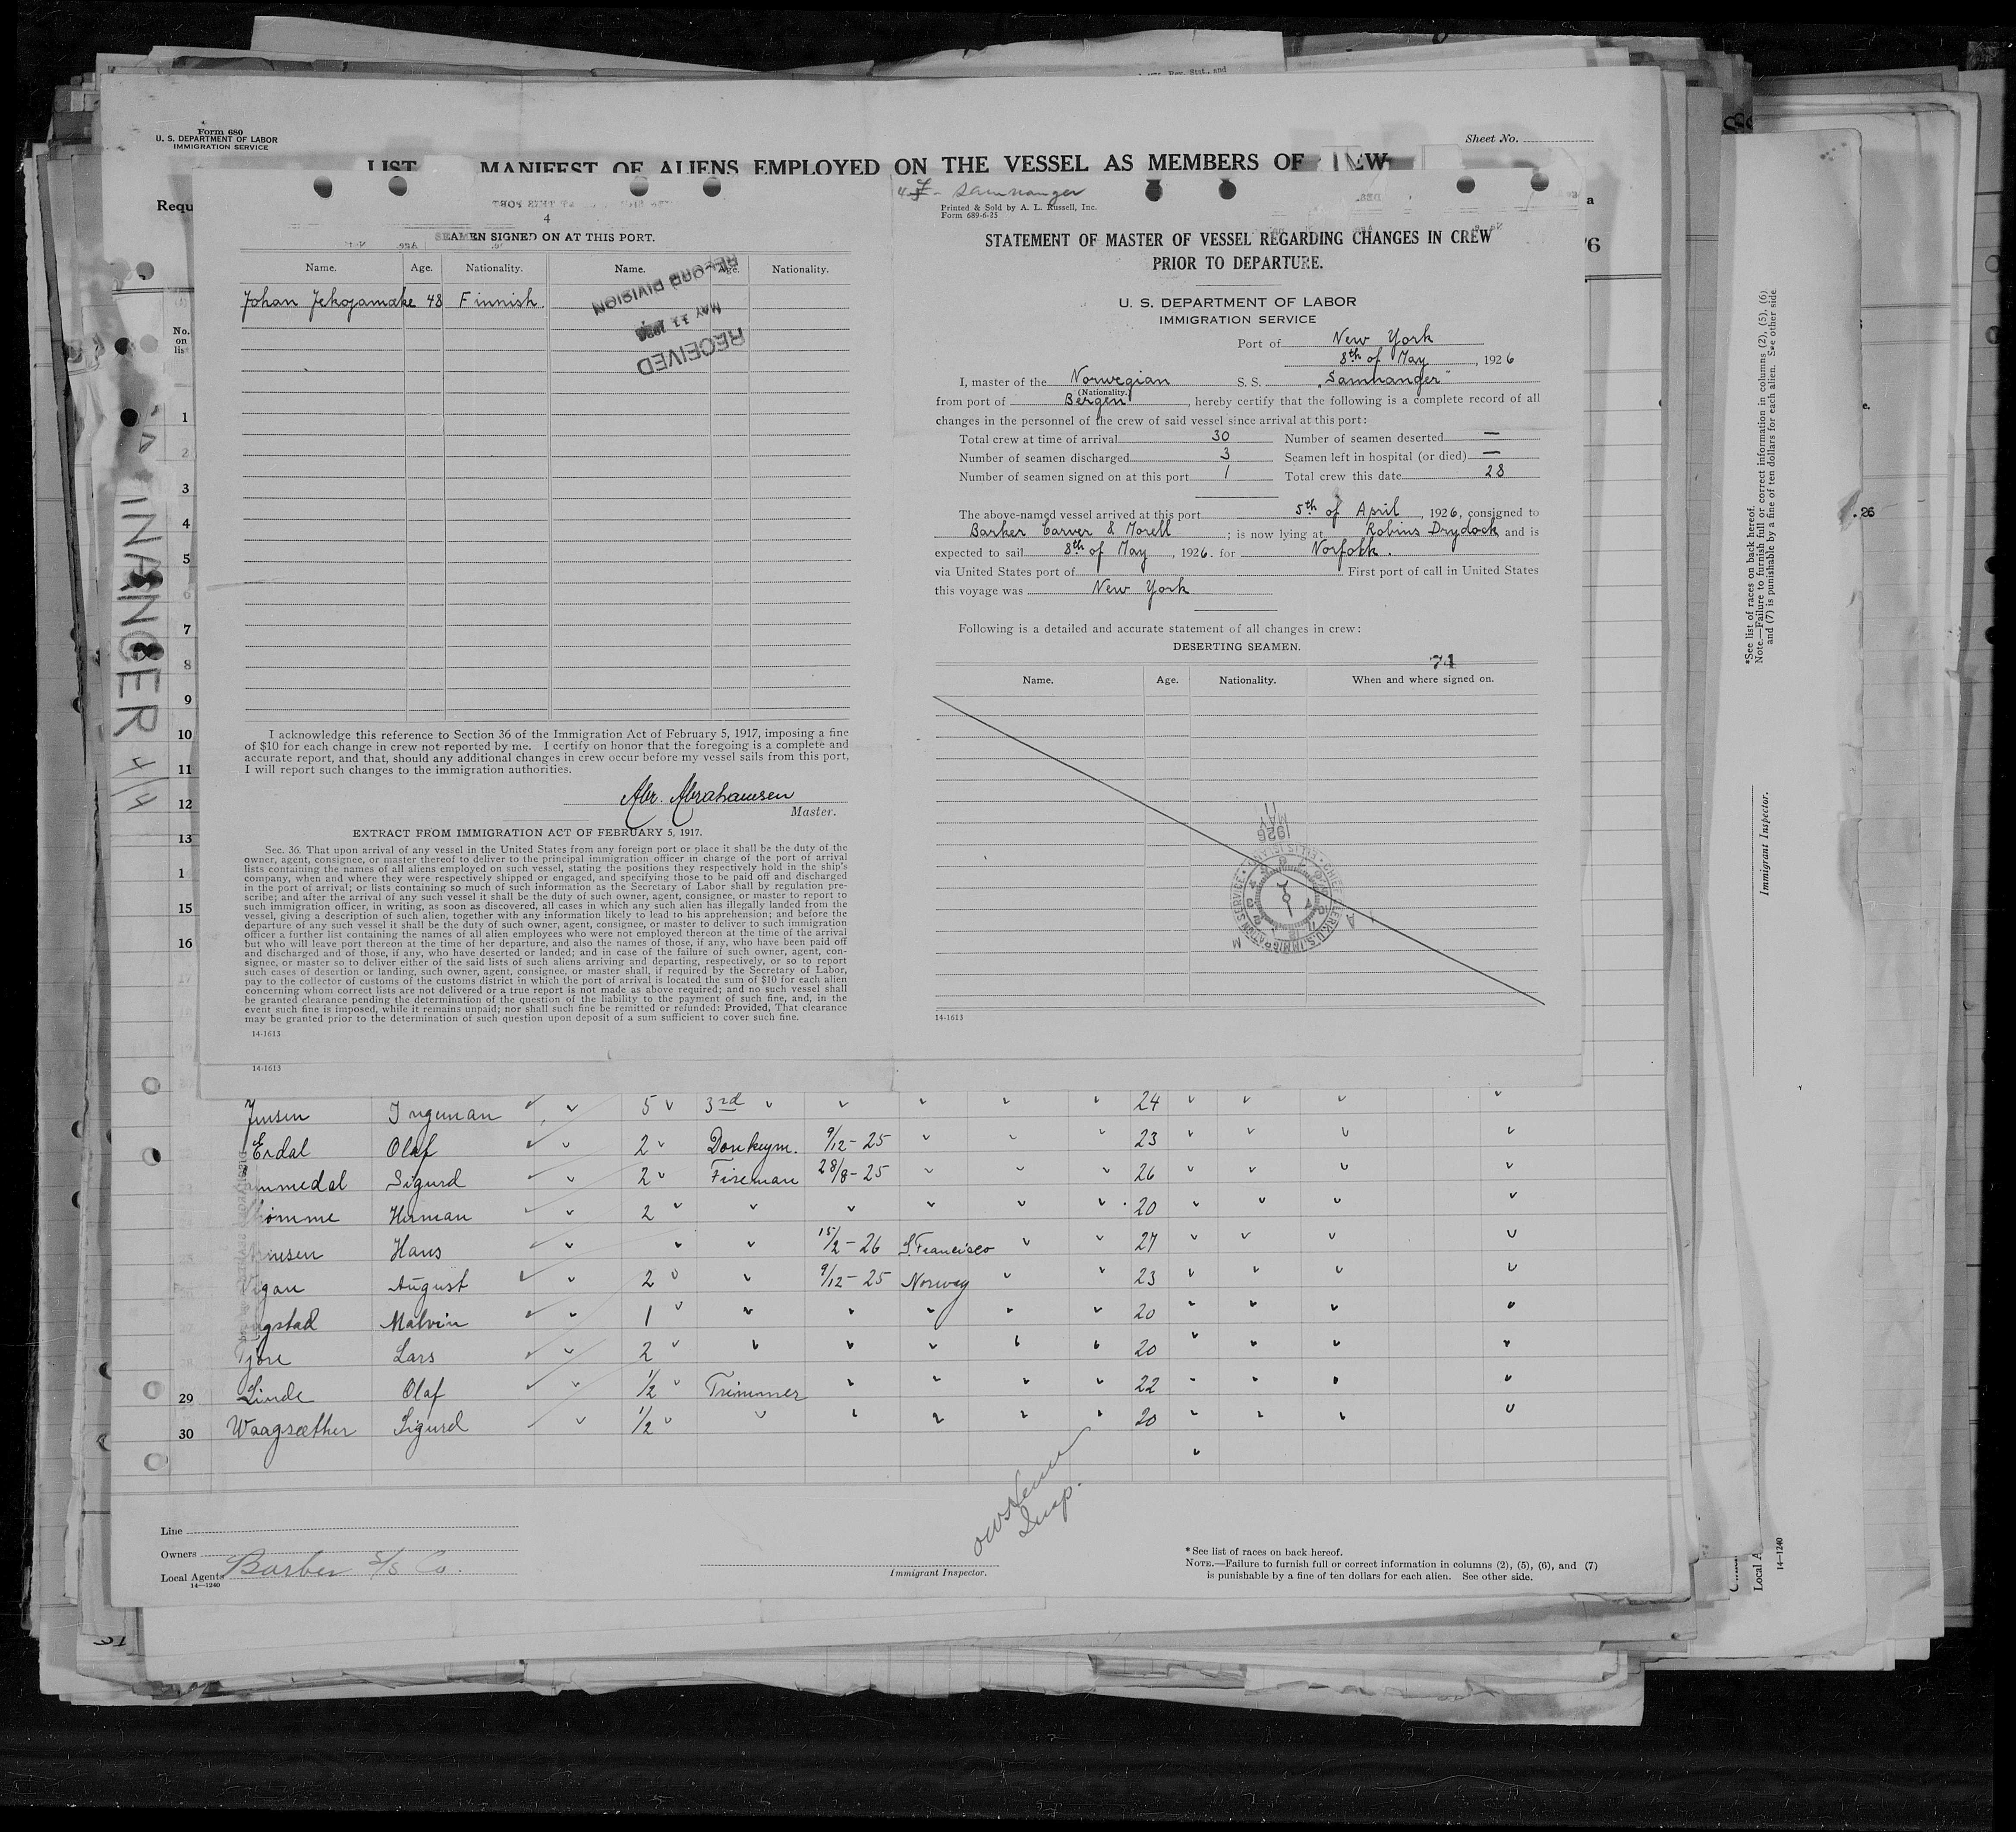 Form 680
U. S. DEPARTMENT OF LABOR
IMMIGRATION SERVICE
Sheet No.
LIST MANIFEST OF ALIENS EMPLOYED ON THE VESSEL AS MEMBERS OF CREW
Requ
4
SEAMEN SIGNED ON AT THIS PORT.
Name. Age. Nationality. Name. Age. Nationality.
Johan 48 Finnish.
RECORD DIVISION
MAY 11 1926
RECEIVED
I acknowledge this reference to Section 36 of the Immigration Act of February 5, 1917, imposing a fine
of $10 for each change in crew not reported by me. I certify on honor that the foregoing is a complete and
accurate report, and that, should any additional changes in crew occur before my vessel sails from this port,
I will report such changes to the immigration authorities.
Abr. Abrahamsen
Master.
EXTRACT FROM IMMIGRATION ACT OF FEBRUARY 5, 1917.
Sec. 36. That upon arrival of any vessel in the United States from any foreign port or place it shall be the duty of the
owner, agent, consignee, or master thereof to deliver to the principal immigration officer in charge of the port of arrival
lists containing the names of all aliens employed on such vessel, stating the positions they respectively hold in the ship's
company, when and where they were respectively shipped or engaged, and specifying those to be paid off and discharged
in the port of arrival; or lists containing so much of such information as the Secretary of Labor shall by regulation pre-
scribe; and after the arrival of any such vessel it shall be the duty of such owner, agent, consignee, or master to report to
such immigration officer, in writing, as soon as discovered, all cases in which any such alien has illegally landed from the
vessel, giving a description of such alien, together with any information likely to lead to his apprehension; and before the
departure of any such vessel it shall be the duty of such owner, agent, consignee, or master to deliver to such immigration
officer a further list containing the names of all alien employees who were not employed thereon at the time of the arrival
but who will leave port thereon at the time of her departure, and also the names of those, if any, who have been paid off
and discharged and of those, if any, who have deserted or landed; and in case of the failure of such owner, agent, con-
signee, or master so to deliver either of the said lists of such aliens arriving and departing, respectively, or so to report
such cases of desertion or landing, such owner, agent, consignee, or master shall, if required by the Secretary of Labor,
pay to the collector of customs of the customs district in which the port of arrival is located the sum of $10 for each alien
concerning whom correct lists are not delivered or a true report is not made as above required; and no such vessel shall
be granted clearance pending the determination of the question of the liability to the payment of such fine, and, in the
event such fine is imposed, while it remains unpaid; nor shall such fine be remitted or refunded: Provided, That clearance
may be granted prior to the determination of such question upon deposit of a sum sufficient to cover such fine.
14-1613
14-1613
Samnanger
Printed & Sold by A. L. Russell, Inc.
Form 689-6-25
STATEMENT OF MASTER OF VESSEL REGARDING CHANGES IN CREW
PRIOR TO DEPARTURE.
U. S. DEPARTMENT OF LABOR
IMMIGRATION SERVICE
Port of New York
8th of May, 1926
I, master of the Norwegian S. S. "Samnanger"
(Nationality.)
from port of Bergen, hereby certify that the following is a complete record of all
changes in the personnel of the crew of said vessel since arrival at this port:
Total crew at time of arrival 30 Number of seamen deserted —
Number of seamen discharged 3 Seamen left in hospital (or died) —
Number of seamen signed on at this port 1 Total crew this date 28
The above-named vessel arrived at this port 5th of April, 1926, consigned to
Barker Carver & Morell; is now lying at Robins Drydock and is
expected to sail 8th of May, 1926. for Norfolk.
via United States port of First port of call in United States
this voyage was New York
Following is a detailed and accurate statement of all changes in crew:
DESERTING SEAMEN.
74
Name. Age. Nationality. When and where signed on.
MAY 11 1926
14-1613
No.
on
list
1
2
3
4
5
6
7
8
9
10
11
12
13
1
15
16
17
NANGER 4/4
Jensen Ingeman 5 3rd 24
Erdal Olaf 2 Donkeym. 9/12-25 23
Sigurd 2 Fireman 28/8-25 26
Herman 2 20
Hans 15/2-26 S. Francisco 27
August 2 9/12-25 Norway 23
Malvin 1 20
Lars 2 20
29 Linde Olaf 1/2 Trimmer 22
30 Waagsæther Sigurd 1/2 20
Insp.
Line
Owners
Local Agents Barber S/S Co.
14—1240
Immigrant Inspector.
* See list of races on back hereof.
NOTE.—Failure to furnish full or correct information in columns (2), (5), (6), and (7)
is punishable by a fine of ten dollars for each alien. See other side.
*See list of races on back hereof.
Note.—Failure to furnish full or correct information in columns (2), (5), (6)
and (7) is punishable by a fine of ten dollars for each alien. See other side
Immigrant Inspector.
Local A
14—1240
. 26